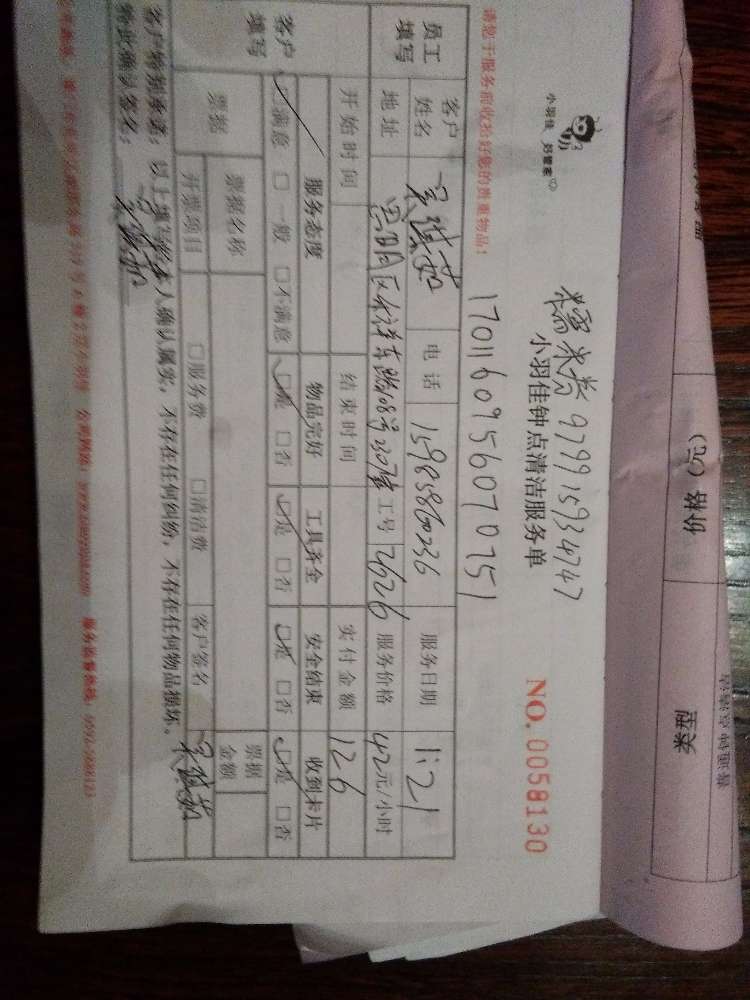 小羽佳 好管家
糯米卷 979915934747
小羽佳钟点清洁服务单
NO. 0058130
请您于服务前收拾好您的贵重物品！
1701160956070751
员工填写 客户姓名 电话 15985860236 服务日期 1.21
地址 工号 2626 服务价格 42元/小时
开始时间 结束时间 实付金额 126
客户填写 服务态度 物品完好 工具齐全 安全结束 收到卡片
☑满意 □一般 □不满意 ☑是 □否 ☑是 □否 ☑是 □否 ☑是 □否
票据 票据名称 票据金额
开票项目 □服务费 □清洁费 客户签名
客户特别承诺：以上填写经本人确认属实，不存在任何纠纷，不存在任何物品损坏。
特此确认签名：
类型
价格（元）